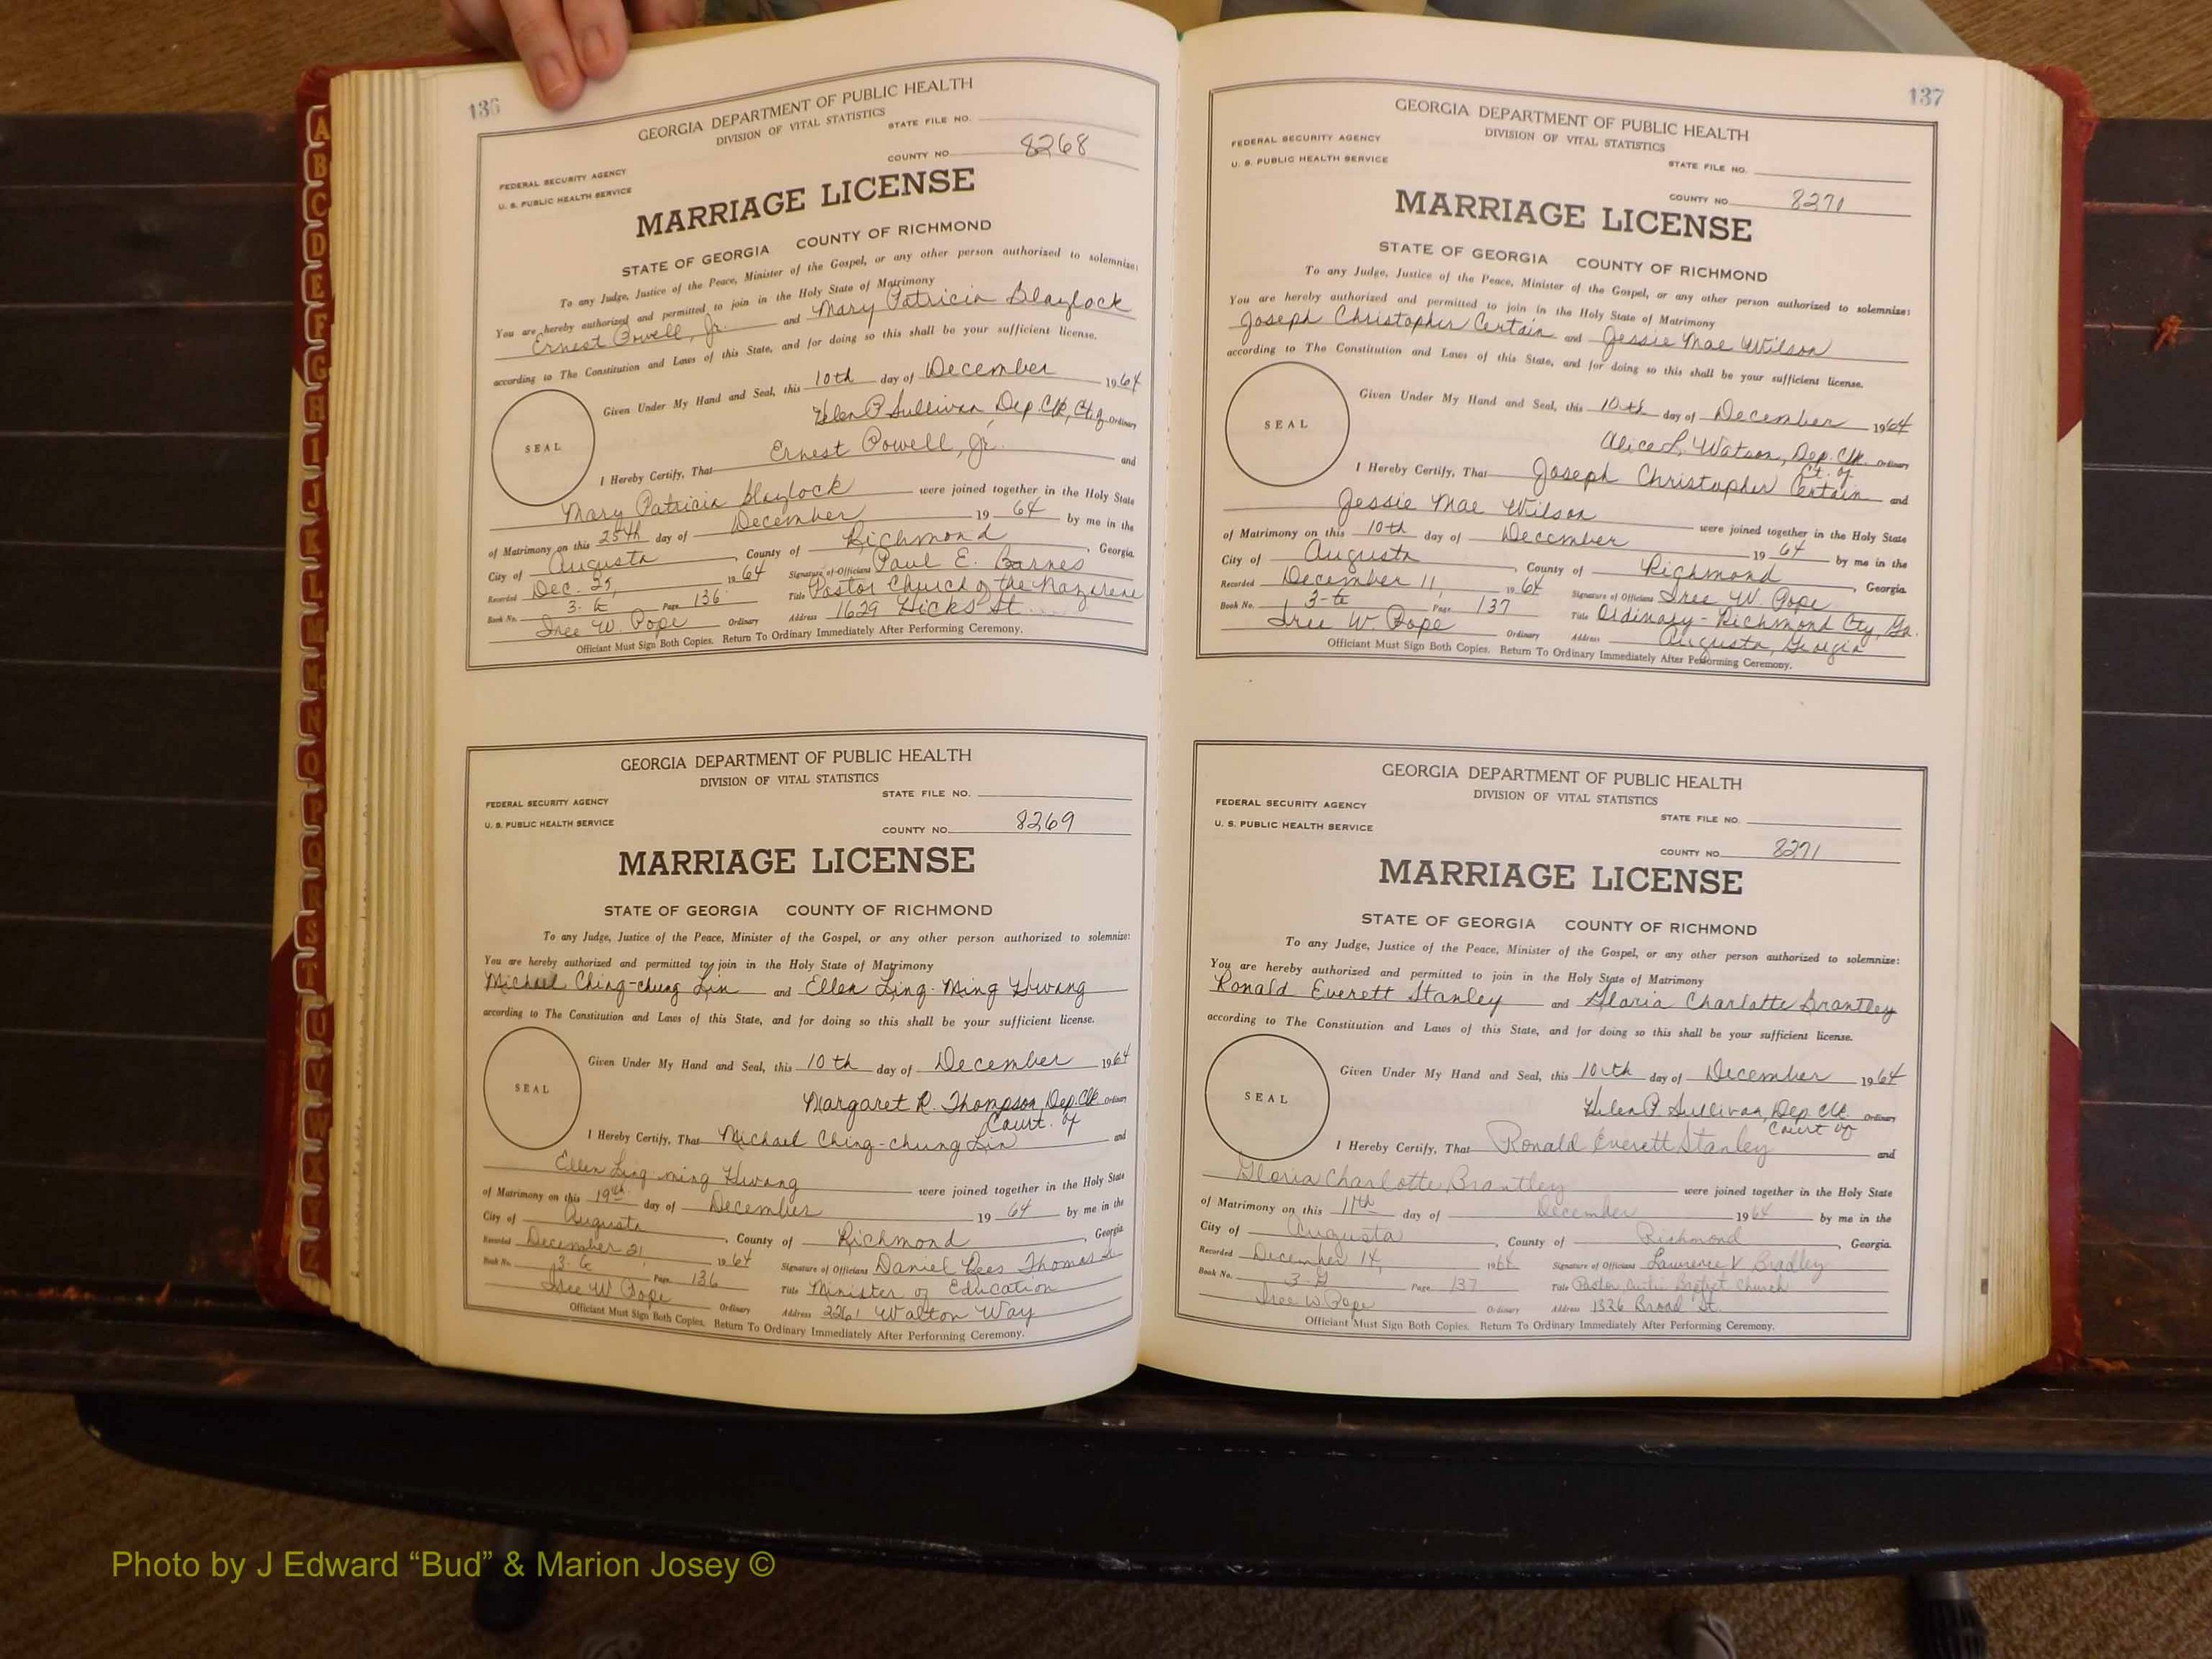 136
GEORGIA DEPARTMENT OF PUBLIC HEALTH
DIVISION OF VITAL STATISTICS
STATE FILE NO.
COUNTY NO. 8268
FEDERAL SECURITY AGENCY
U. S. PUBLIC HEALTH SERVICE
MARRIAGE LICENSE
STATE OF GEORGIA COUNTY OF RICHMOND
To any Judge, Justice of the Peace, Minister of the Gospel, or any other person authorized to solemnize:
You are hereby authorized and permitted to join in the Holy State of Matrimony
Ernest Powell, Jr. and Mary Patricia Blaylock
according to The Constitution and Laws of this State, and for doing so this shall be your sufficient license.
Given Under My Hand and Seal, this 10th day of December 1964
SEAL
Helen P. Sullivan Dep. Clk, Ct. of Ordinary
I Hereby Certify, That Ernest Powell, Jr. and
Mary Patricia Blaylock were joined together in the Holy State
of Matrimony on this 25th day of December 19 64 by me in the
City of Augusta, County of Richmond, Georgia.
Recorded Dec. 25, 1964 Signature of Officiant Paul E. Barnes
Book No. 3- Page 136 Title Pastor Church of the Nazarene
Iree W. Pope Ordinary Address 1629 Hicks St.
Officiant Must Sign Both Copies. Return To Ordinary Immediately After Performing Ceremony.
GEORGIA DEPARTMENT OF PUBLIC HEALTH
DIVISION OF VITAL STATISTICS
STATE FILE NO.
FEDERAL SECURITY AGENCY
U. S. PUBLIC HEALTH SERVICE
COUNTY NO. 8269
MARRIAGE LICENSE
STATE OF GEORGIA COUNTY OF RICHMOND
To any Judge, Justice of the Peace, Minister of the Gospel, or any other person authorized to solemnize:
You are hereby authorized and permitted to join in the Holy State of Matrimony
Michael Ching-chung Lin and Ellen Ling-Ming Hwang
according to The Constitution and Laws of this State, and for doing so this shall be your sufficient license.
Given Under My Hand and Seal, this 10th day of December 1964
SEAL
Margaret R. Thompson, Dep. Clk Ordinary
Court of
I Hereby Certify, That Michael Ching-chung Lin and
Ellen Ling-ming Hwang were joined together in the Holy State
of Matrimony on this 19th day of December 19 64 by me in the
City of Augusta, County of Richmond, Georgia
Recorded December 21, 1964 Signature of Officiant Daniel Lees Thomas
Book No. 3- Page 136 Title Minister of Education
Iree W Pope Ordinary Address 2261 Walton Way
Officiant Must Sign Both Copies. Return To Ordinary Immediately After Performing Ceremony.
137
GEORGIA DEPARTMENT OF PUBLIC HEALTH
DIVISION OF VITAL STATISTICS
FEDERAL SECURITY AGENCY
U. S. PUBLIC HEALTH SERVICE
STATE FILE NO.
COUNTY NO. 8271
MARRIAGE LICENSE
STATE OF GEORGIA COUNTY OF RICHMOND
To any Judge, Justice of the Peace, Minister of the Gospel, or any other person authorized to solemnize:
You are hereby authorized and permitted to join in the Holy State of Matrimony
Joseph Christopher Certain and Jessie Mae Wilson
according to The Constitution and Laws of this State, and for doing so this shall be your sufficient license.
Given Under My Hand and Seal, this 10th day of December 1964
SEAL
Alice L. Watson, Dep. Clk. Ordinary
Ct. of
I Hereby Certify, That Joseph Christopher Certain and
Jessie Mae Wilson were joined together in the Holy State
of Matrimony on this 10th day of December 19 64 by me in the
City of Augusta, County of Richmond, Georgia
Recorded December 11, 1964 Signature of Officiant Iree W. Pope
Book No. 3- Page 137 Title Ordinary - Richmond Cty, Ga.
Iree W. Pope Ordinary Address Augusta, Georgia
Officiant Must Sign Both Copies. Return To Ordinary Immediately After Performing Ceremony.
GEORGIA DEPARTMENT OF PUBLIC HEALTH
DIVISION OF VITAL STATISTICS
FEDERAL SECURITY AGENCY
U. S. PUBLIC HEALTH SERVICE
STATE FILE NO.
COUNTY NO. 8271
MARRIAGE LICENSE
STATE OF GEORGIA COUNTY OF RICHMOND
To any Judge, Justice of the Peace, Minister of the Gospel, or any other person authorized to solemnize:
You are hereby authorized and permitted to join in the Holy State of Matrimony
Ronald Everett Stanley and Gloria Charlotte Brantley
according to The Constitution and Laws of this State, and for doing so this shall be your sufficient license.
Given Under My Hand and Seal, this 10th day of December 1964
SEAL
Helen P. Sullivan, Dep. Clk. Ordinary
Court of
I Hereby Certify, That Ronald Everett Stanley and
Gloria Charlotte Brantley were joined together in the Holy State
of Matrimony on this 11th day of December 1964 by me in the
City of Augusta, County of Richmond, Georgia
Recorded December 14, 1964 Signature of Officiant Lawrence V Bradley
Book No. 3- Page 137 Title Pastor Baptist Church
Iree W. Pope Ordinary Address 1326 Broad St.
Officiant Must Sign Both Copies. Return To Ordinary Immediately After Performing Ceremony.
A
B
C
D
E
F
G
H
I
J
K
L
M
Mc
N
O
P
Q
R
S
T
U
V
W
X
Y
Z
Photo by J Edward “Bud” & Marion Josey ©